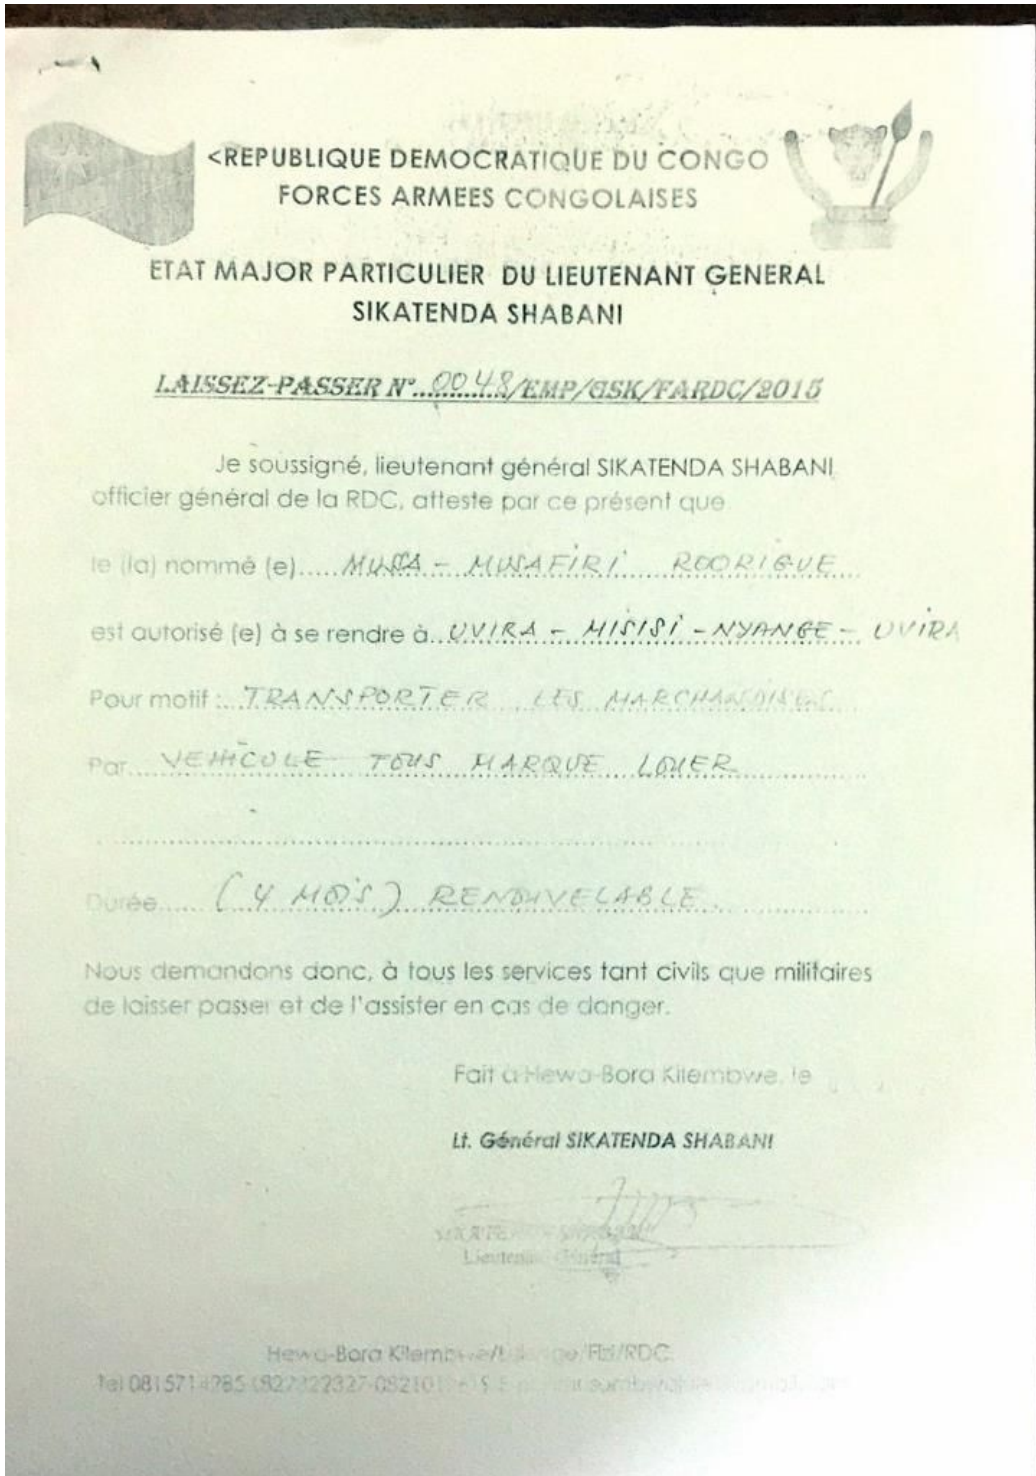 <REPUBLIQUE DEMOCRATIQUE DU CONGO
FORCES ARMEES CONGOLAISES
ETAT MAJOR PARTICULIER DU LIEUTENANT GENERAL
SIKATENDA SHABANI
LAISSEZ-PASSER N°..0048/EMP/GSK/FARDC/2015
Je soussigné, lieutenant général SIKATENDA SHABANI
officier général de la RDC, atteste par ce présent que
le (la) nommé (e)..... MUSSA - MUSAFIRI RODRIGUE
est autorisé (e) à se rendre à.. UVIRA - MISISI - NYANGE - UVIRA
Pour motif :.. TRANSPORTER LES MARCHANDISES
Par.... VEHICULE TOUS MARQUE LOUER
Durée..... (4 MOIS) RENOUVELABLE.
Nous demandons donc, à tous les services tant civils que militaires
de laisser passer et de l'assister en cas de danger.
Fait à Hewa-Bora Kilembwe, le
Lt. Général SIKATENDA SHABANI
Lieutenant Général
Hewa-Bora Kilembwe/ /Fizi/RDC
Tel